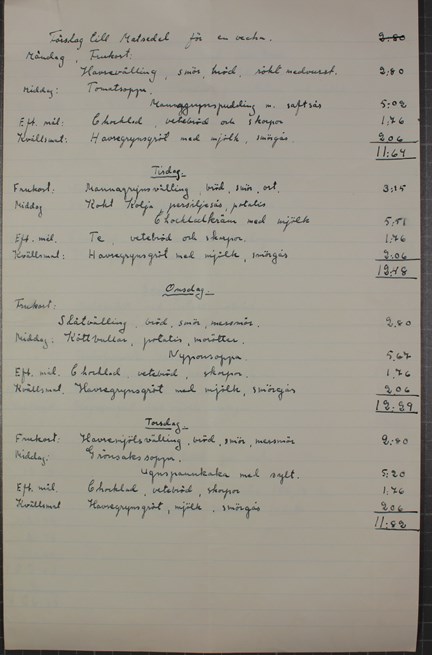 Förslag till Matsedel för en vecka. 2.80
Måndag, Frukost:
Havrevälling, smör, bröd, rökt medvurst. 2,80
Middag: Tomatsoppa.
Mannagrynspudding m. saftsås 5:02
Eft. mål: Choklad, vetebröd och skorpor 1,76
Kvällsmat: Havregrynsgröt med mjölk, smörgås 2.06
11:64
Tisdag.
Frukost: Mannagrynsvälling, bröd, smör, ost. 3:15
Middag Kokt Kolja, persiljesås, potatis
Chokladkräm med mjölk 5,51
Eft. mål. Te, vetebröd och skorpor. 1.76
Kvällsmat: Havregrynsgröt med mjölk, smörgås 2.06
12:48
Onsdag.
Frukost:
Slätvälling, bröd, smör, messmör. 2.80
Middag: Köttbullar, potatis, morötter.
Nyponsoppa 5,67
Eft. mål. Choklad, vetebröd, skorpor. 1.76
Kvällsmat. Havregrynsgröt med mjölk, smörgås 2.06
12.29
Torsdag.
Frukost: Havremjölsvälling, bröd, smör, messmör 2.80
Middag: Grönsakssoppa.
Ugnspannkaka med sylt. 5:20
Eft. mål. Choklad, vetebröd, skorpor 1:76
Kvällsmat Havregrynsgröt, mjölk, smörgås 2.06
11:82